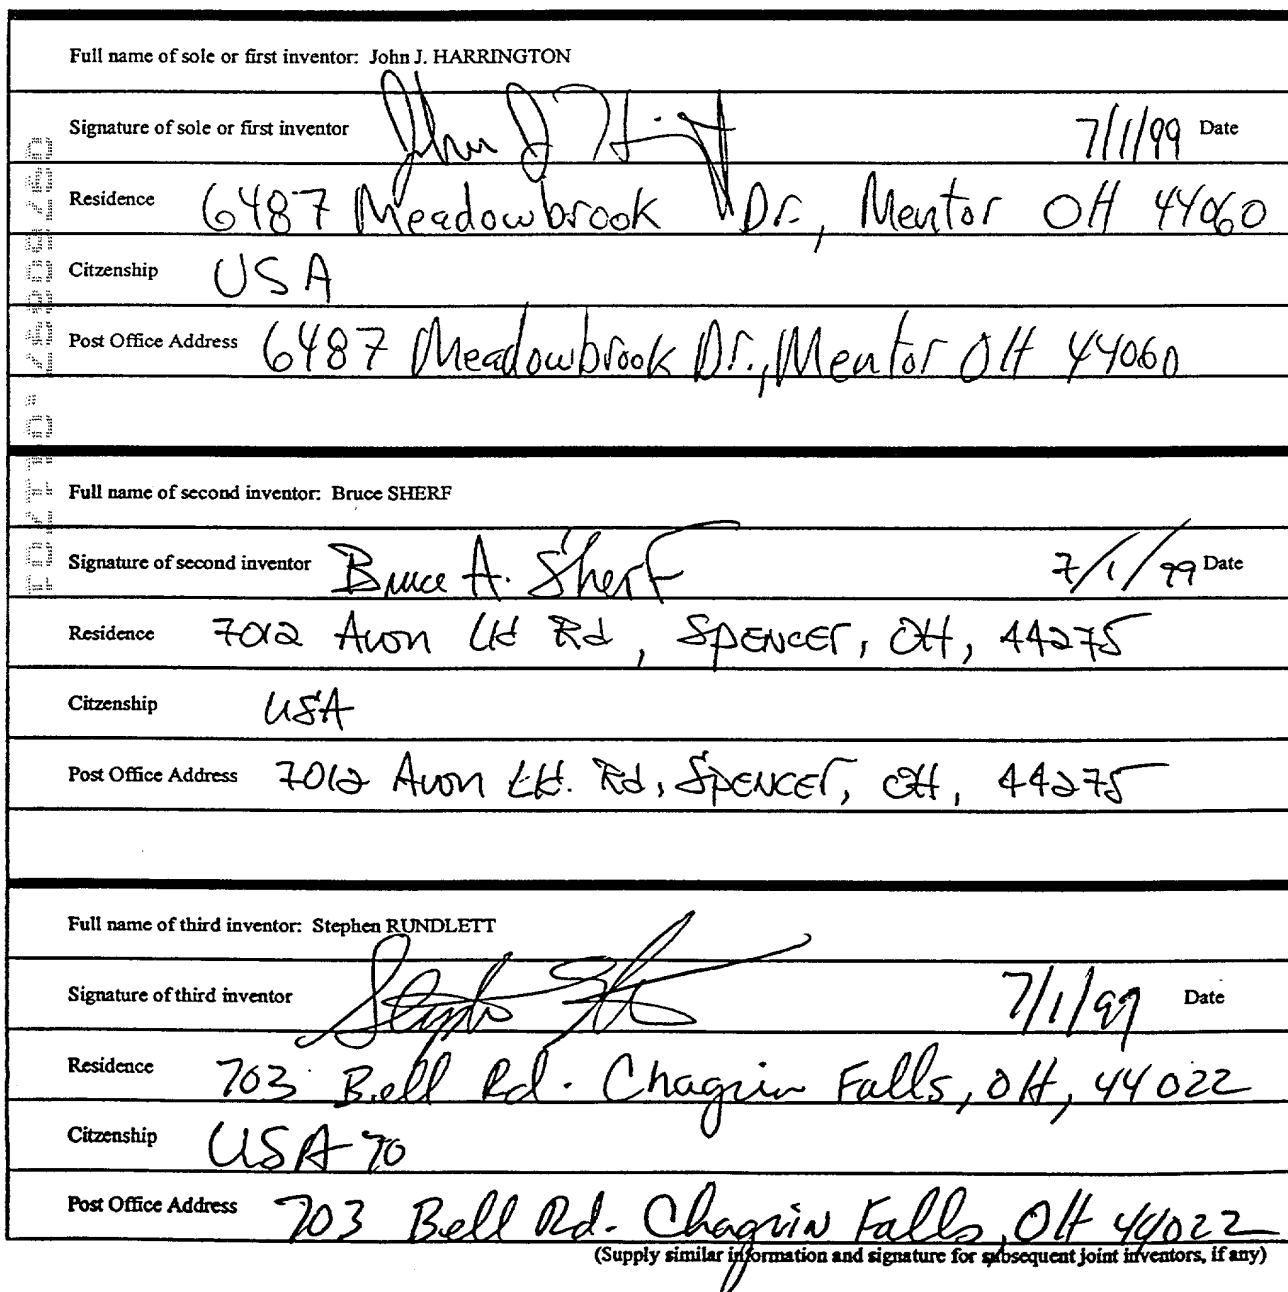 Full name of sole or first inventor: John J. HARRINGTON
Signature of sole or first inventor John J 7/1/99 Date
Residence 6487 Meadowbrook Dr., Mentor OH 44060
Citzenship USA
Post Office Address 6487 Meadowbrook Dr., Mentor OH 44060
Full name of second inventor: Bruce SHERF
Signature of second inventor Bruce A. Sherf 7/1/99 Date
Residence 7012 Avon Ld Rd, SPENCER, OH, 44275
Citzenship USA
Post Office Address 7012 Avon Ld. Rd, SPENCER, OH, 44275
Full name of third inventor: Stephen RUNDLETT
Signature of third inventor 7/1/99 Date
Residence 703 Bell Rd. Chagrin Falls, OH, 44022
Citzenship USA
Post Office Address 703 Bell Rd. Chagrin Falls, OH 44022
(Supply similar information and signature for subsequent joint inventors, if any)